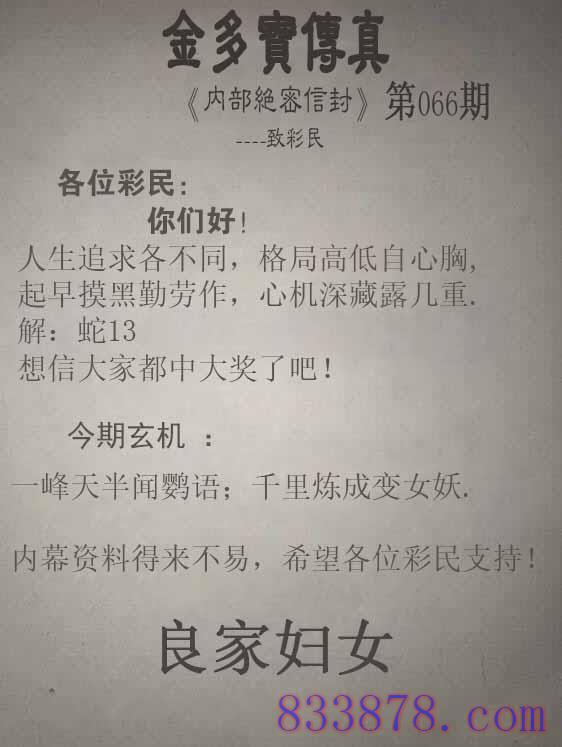 金多寶傳真
《内部絶密信封》第066期
----致彩民
各位彩民:
你们好!
人生追求各不同，格局高低自心胸,
起早摸黑勤劳作，心机深藏露几重.
解：蛇13
想信大家都中大奖了吧！
今期玄机 ：
一峰天半闻鹦语；千里炼成变女妖.
内幕资料得来不易，希望各位彩民支持！
良家妇女
833878.com